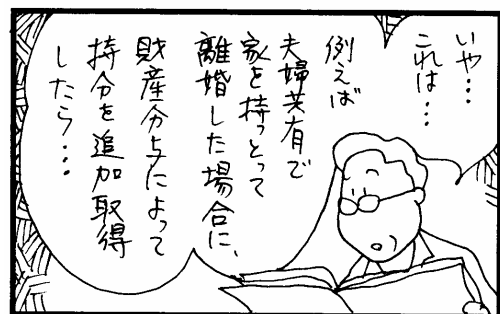 いや…
これは…
例えば
夫婦共有で
家を持っとって
離婚した場合に、
財産分与によって
持分を追加取得
したら…